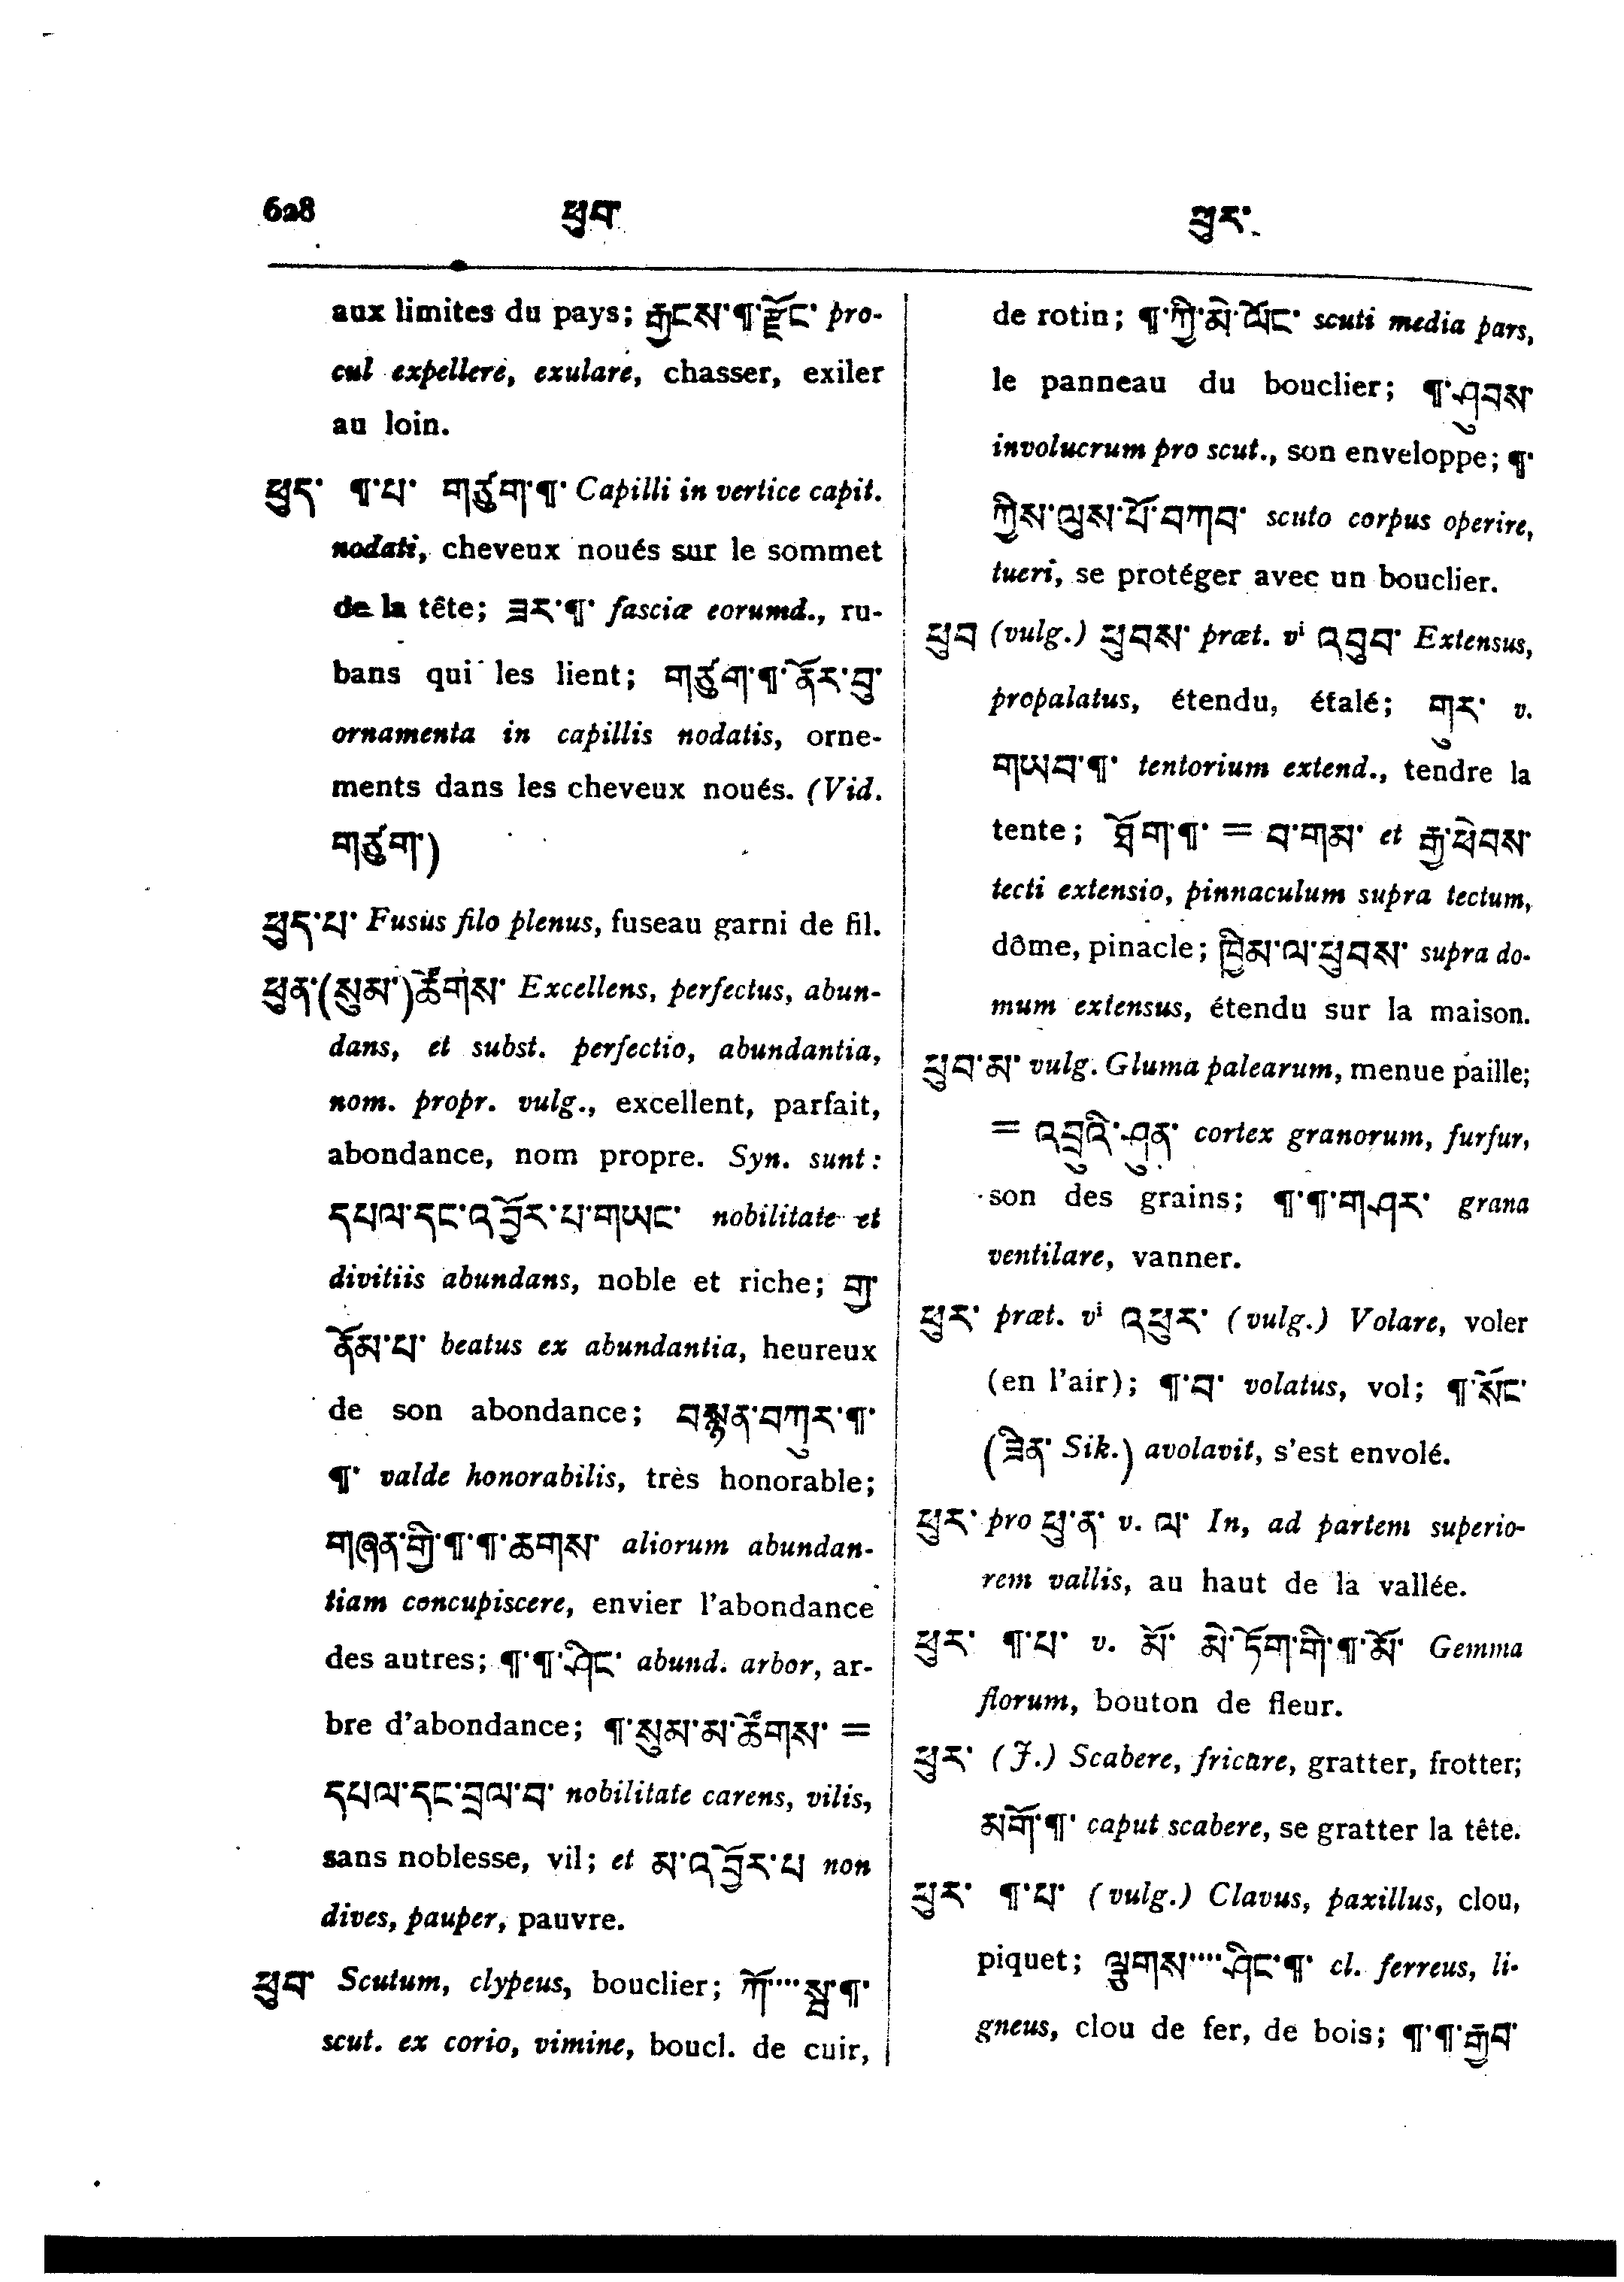 628 ཕུབ ཕུར་
aux limites du pays; རྒྱངས་¶་རྫོང་ pro-
cul expellere, exulare, chasser, exiler
au loin.
ཕུད་ ¶་པ་ གཙུག་¶་ Capilli in vertice capit.
nodati, cheveux noués sur le sommet
de la tête; ཟར་¶་ fasciæ eorumd., ru-
bans qui les lient; གཙུག་¶་ནོར་བུ་
ornamenta in capillis nodatis, orne-
ments dans les cheveux noués. (Vid.
གཙུག་)
ཕུད་པ་ Fusus filo plenus, fuseau garni de fil.
ཕུན་(སུམ་)ཚོགས་ Excellens, perfectus, abun-
dans, et subst. perfectio, abundantia,
nom. propr. vulg., excellent, parfait,
abondance, nom propre. Syn. sunt:
དཔལ་དང་འབྱོར་པ་གཡང་ nobilitate et
divitiis abundans, noble et riche; གྱ་
ནོམ་པ་ beatus ex abundantia, heureux
de son abondance; བསྙན་བཀུར་¶་
¶་ valde honorabilis, très honorable;
གཞན་གྱི་¶་¶་ཆགས་ aliorum abundan-
tiam concupiscere, envier l'abondance
des autres; ¶་¶་ཤིང་ abund. arbor, ar-
bre d'abondance; ¶་སུམ་མ་ཚོགས་ =
དཔལ་དང་བྲལ་བ་ nobilitate carens, vilis,
sans noblesse, vil; et མ་འབྱོར་པ non
dives, pauper, pauvre.
ཕུབ་ Scutum, clypeus, bouclier; ཀོ་····སྦ་¶་
scut. ex corio, vimine, boucl. de cuir,
de rotin; ¶་ཀྱི་མེ་ལོང་ scuti media pars,
le panneau du bouclier; ¶་ཤུབས་
involucrum pro scut., son enveloppe; ¶་
ཀྱིས་ལུས་པོ་བཀབ་ scuto corpus operire,
tueri, se protéger avec un bouclier.
ཕུབ (vulg.) ཕུབས་ præt. vⁱ འབུབ་ Extensus,
propalatus, étendu, étalé; གུར་ v.
གཡབ་¶་ tentorium extend., tendre la
tente; ཐོག་¶་ = བ་གམ་ et རྒྱ་ཕེབས་
tecti extensio, pinnaculum supra tectum,
dôme, pinacle; ཁྱིམ་ལ་ཕུབས་ supra do-
mum extensus, étendu sur la maison.
ཕུབ་མ་ vulg. Gluma palearum, menue paille;
= འབྲུའི་ཤུན་ cortex granorum, furfur,
son des grains; ¶་¶་གཤར་ grana
ventilare, vanner.
ཕུར་ præt. vⁱ འཕུར་ (vulg.) Volare, voler
(en l'air); ¶་བ་ volatus, vol; ¶་སོང་
(ཟིན་ Sik.) avolavit, s'est envolé.
ཕུར་ pro ཕུ་ན་ v. ལ་ In, ad partem superio-
rem vallis, au haut de la vallée.
ཕུར་ ¶་པ་ v. མོ་ མེ་ཏོག་གི་¶་མོ་ Gemma
florum, bouton de fleur.
ཕུར་ (J.) Scabere, fricare, gratter, frotter;
མགོ་¶་ caput scabere, se gratter la tête.
ཕུར་ ¶་པ་ (vulg.) Clavus, paxillus, clou,
piquet; ལྕགས་····ཤིང་¶་ cl. ferreus, li-
gneus, clou de fer, de bois; ¶་¶་རྒྱབ་